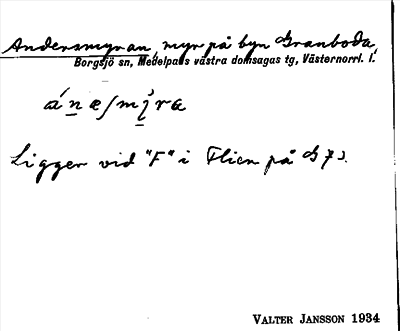 Andersmyran, myr på byn Granboda,
Borgsjö sn, Medelpads västra domsagas tg, Västernorrl. l.
Ligger vid "F" i Flien på G 7).
VALTER JANSSON 1934